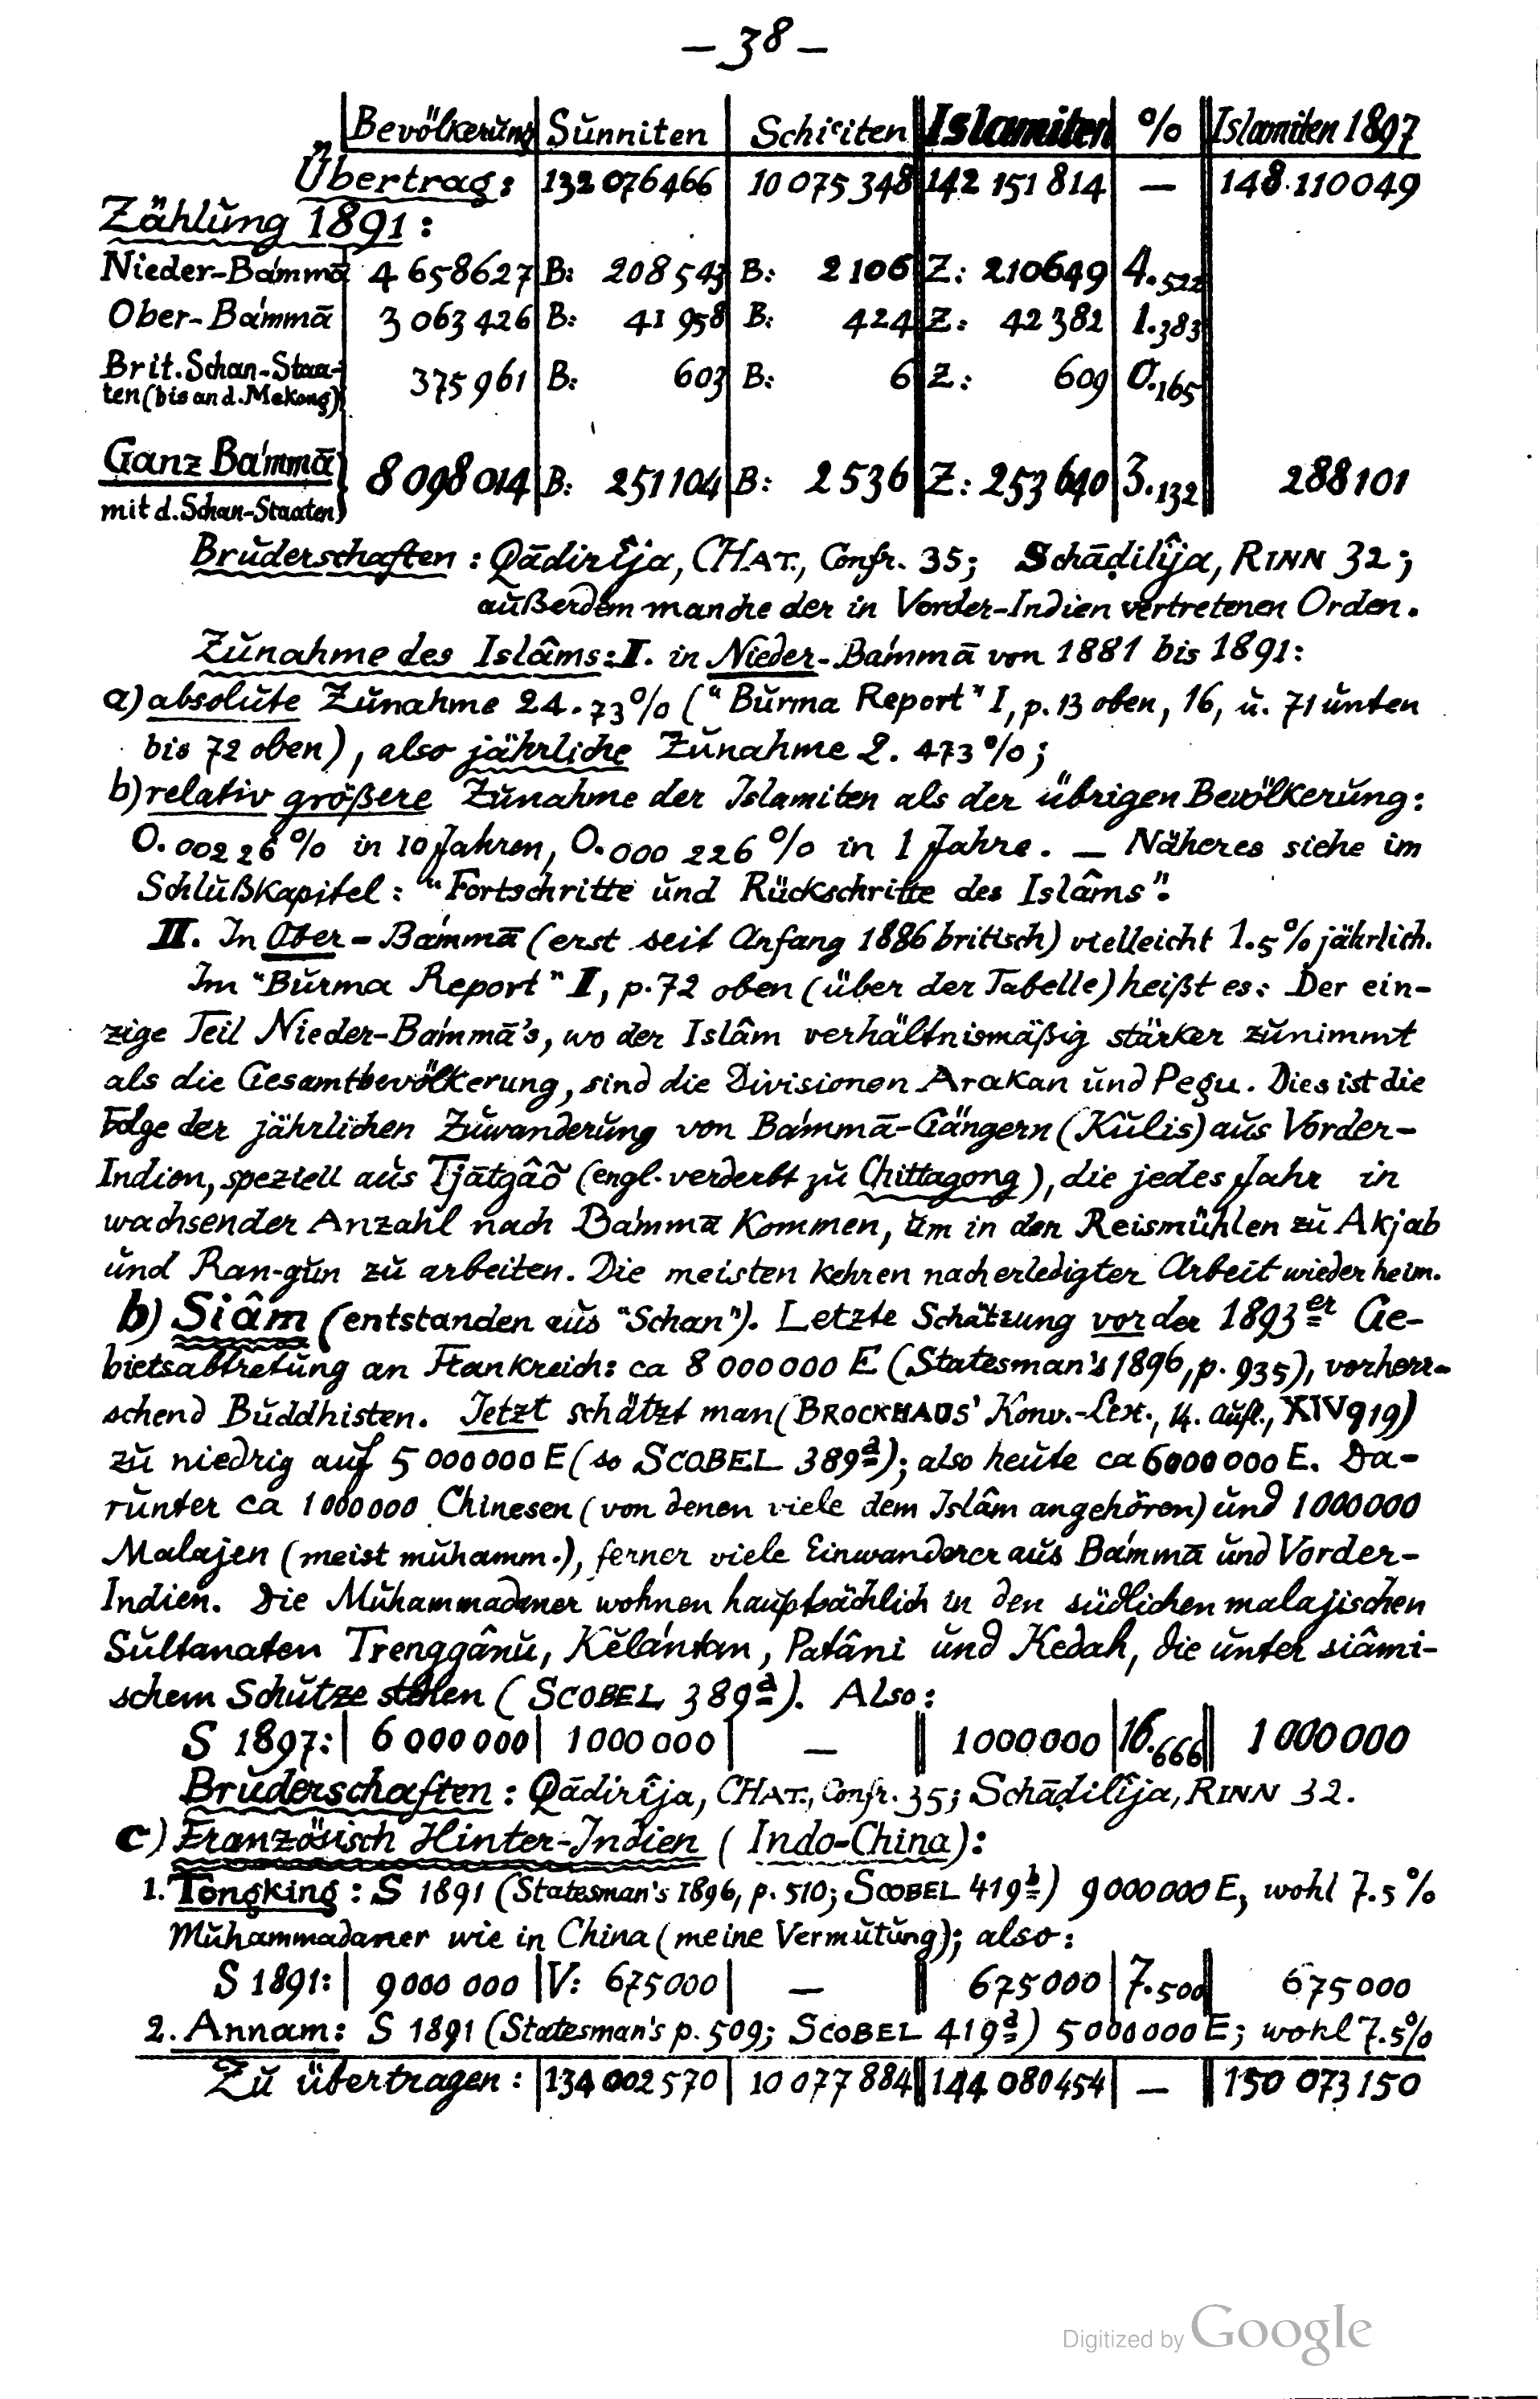 – 38 –
Bevölkerung Sunniten Schiʿiten Islamiten % Islamiten 1897
Übertrag: 132 076466 10 075 348 142 151 814 — 148 110 049
Zählung 1891:
Nieder-Bámmā 4 658627 B: 208 543 B: 2 106 Z: 210649 4.522
Ober-Bámmā 3 063 426 B: 41 958 B: 424 Z: 42 382 1.383
Brit. Schan-Staa-
ten (bis an d. Mekong) 375 961 B: 603 B: 6 Z: 609 0.165
Ganz Bámmā
mit d. Schan-Staaten 8 098 014 B: 251 104 B: 2 536 Z: 253 640 3.132 288 101
Bruderschaften: Qādirîja, CHAT., Confr. 35; Schāḍilîja, RINN 32;
außerdem manche der in Vorder-Indien vertretenen Orden.
Zunahme des Islâms: I. in Nieder-Bámmā von 1881 bis 1891:
a) absolute Zunahme 24.73% ("Burma Report" I, p. 13 oben, 16, u. 71 unten
bis 72 oben), also jährliche Zunahme 2.473%;
b) relativ größere Zunahme der Islamiten als der übrigen Bevölkerung:
0.00226% in 10 Jahren, 0.000 226% in 1 Jahre. — Näheres siehe im
Schlußkapitel: "Fortschritte und Rückschritte des Islâms".
II. In Ober-Bámmā (erst seit Anfang 1886 britisch) vielleicht 1.5% jährlich.
Im "Burma Report" I, p. 72 oben (über der Tabelle) heißt es: Der ein-
zige Teil Nieder-Bámmā's, wo der Islâm verhältnismäßig stärker zunimmt
als die Gesamtbevölkerung, sind die Divisionen Arakan und Pegu. Dies ist die
Folge der jährlichen Zuwanderung von Bámmā-Gängern (Kulis) aus Vorder-
Indien, speziell aus Tjātgâõ (engl. verderbt zu Chittagong), die jedes Jahr in
wachsender Anzahl nach Bámmā kommen, um in den Reismühlen zu Akjab
und Ran-gun zu arbeiten. Die meisten kehren nach erledigter Arbeit wieder heim.
b) Siâm (entstanden aus "Schan"). Letzte Schätzung vor der 1893er Ge-
bietsabtretung an Frankreich: ca 8 000 000 E (Statesman's 1896, p. 935), vorherr-
schend Buddhisten. Jetzt schätzt man (BROCKHAUS' Konv.-Lex., 14. Aufl., XIV 919)
zu niedrig auf 5 000 000 E (so SCOBEL 389a); also heute ca 6 000 000 E. Da-
runter ca 1 000 000 Chinesen (von denen viele dem Islâm angehören) und 1 000 000
Malajen (meist muhamm.), ferner viele Einwanderer aus Bámmā und Vorder-
Indien. Die Muhammadaner wohnen hauptsächlich in den südlichen malajischen
Sultanaten Trenggânu, Kĕlántan, Patâni und Kedah, die unter siâmi-
schem Schutze stehen (SCOBEL 389a). Also:
S 1897: 6 000 000 1 000 000 — 1 000 000 16.666 1 000 000
Bruderschaften: Qādirîja, CHAT., Confr. 35; Schāḍilîja, RINN 32.
c) Französisch Hinter-Indien (Indo-China):
1. Tongking: S 1891 (Statesman's 1896, p. 510; SCOBEL 419b) 9 000 000 E, wohl 7.5%
Muhammadaner wie in China (meine Vermutung); also:
S 1891: 9 000 000 V: 675 000 — 675 000 7.500 675 000
2. Annam: S 1891 (Statesman's p. 509; SCOBEL 419a) 5 000 000 E; wohl 7.5%
Zu übertragen: 134 002 570 10 077 884 144 080 454 — 150 073 150
Digitized by Google